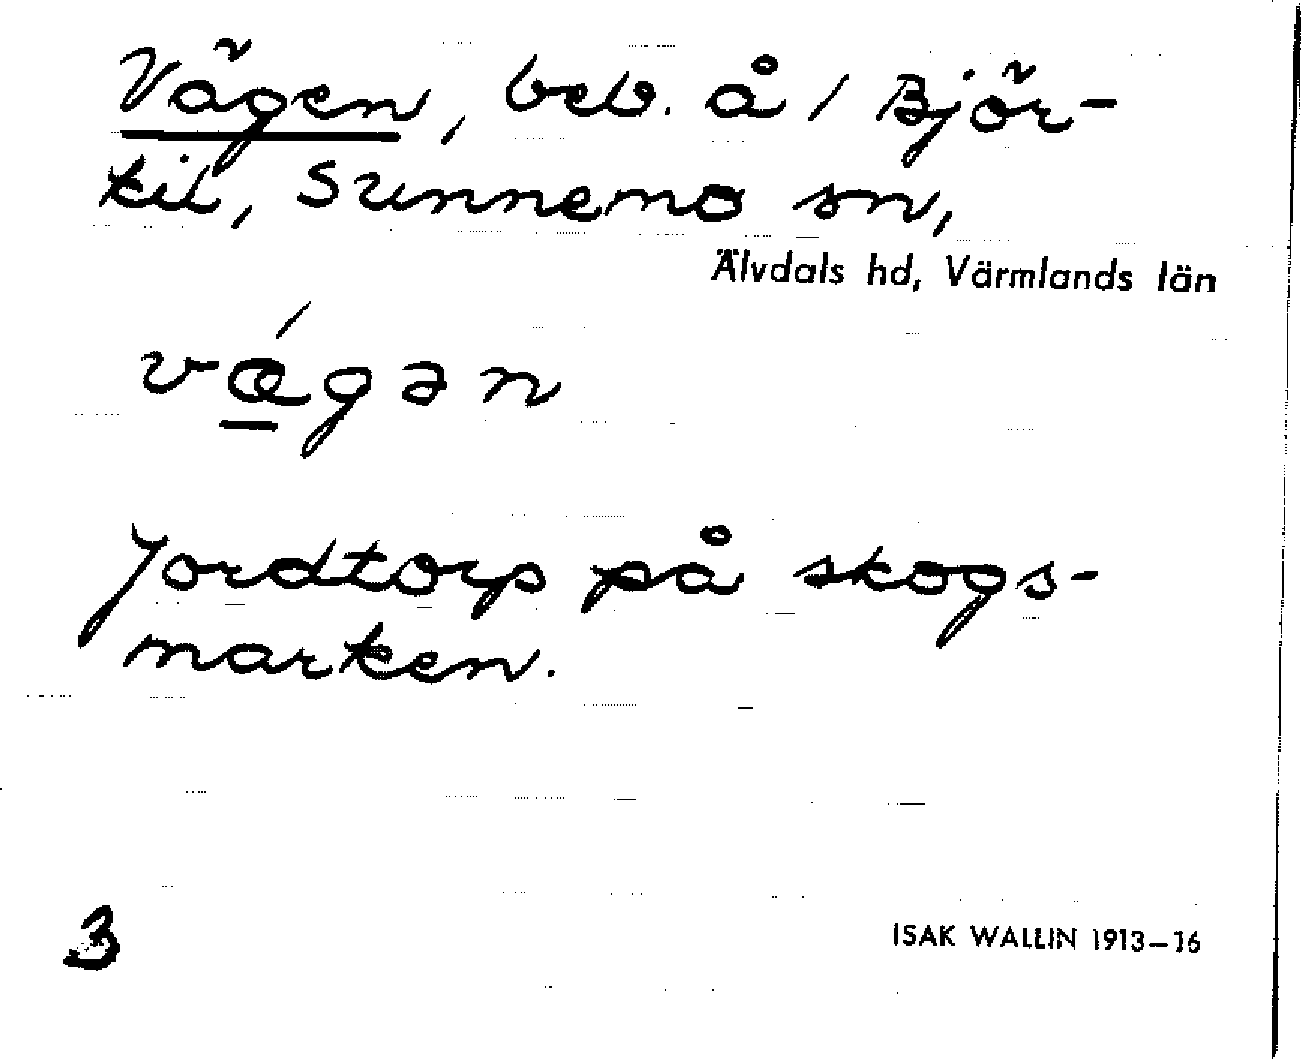 Vägen, beb. å / Björ-
kil, Sunnemo sn,
Älvdals hd, Värmlands län
vǽ̲gan
Jordtorp på skogs-
marken.
3
ISAK WALLIN 1913–16